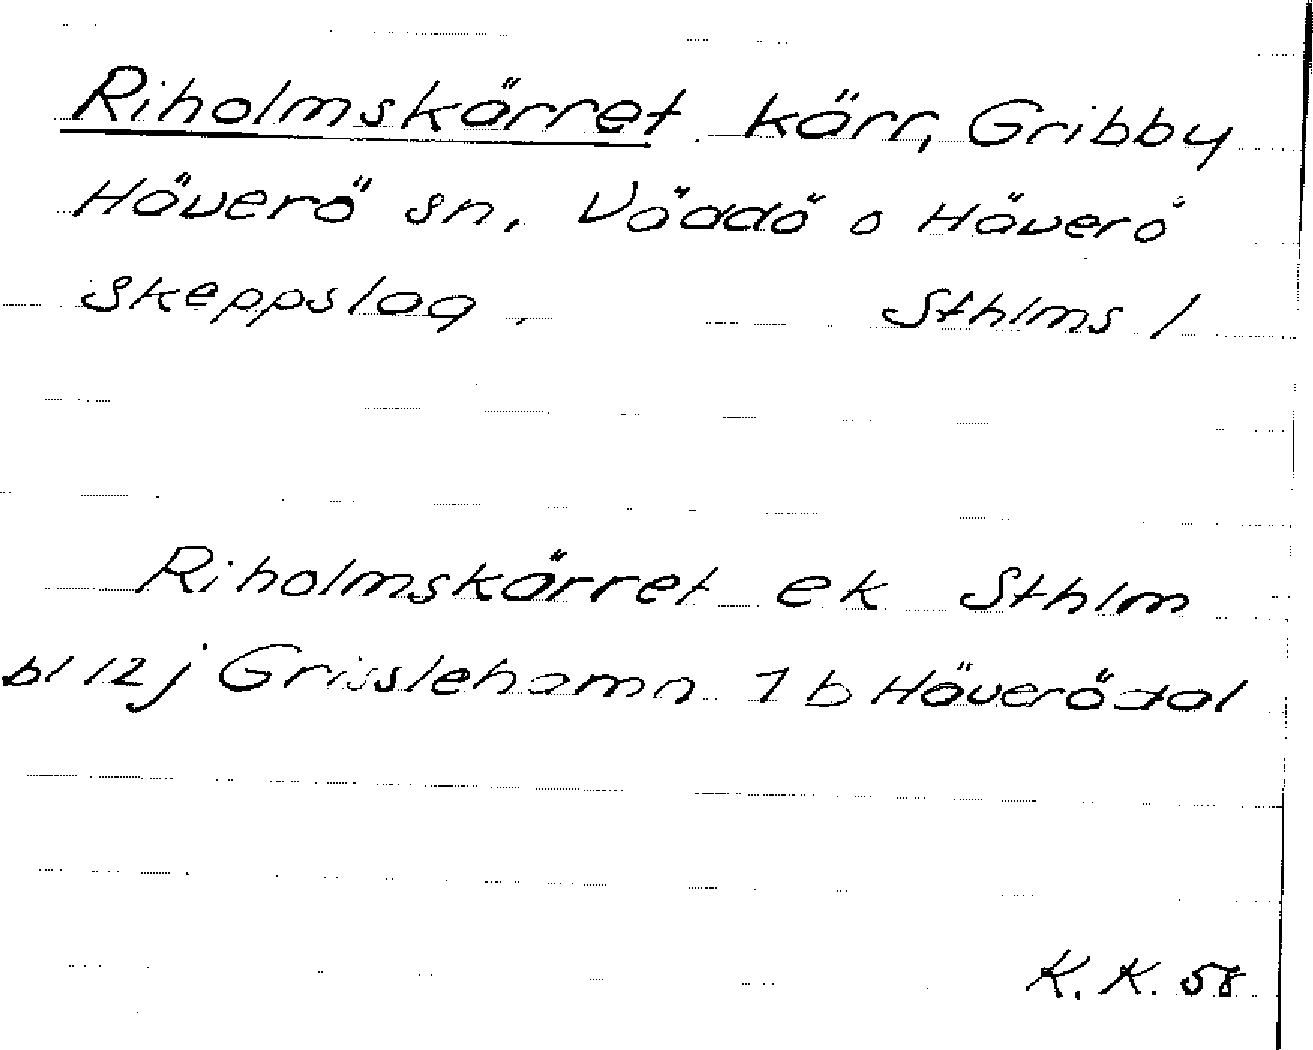 Riholmskärret kärr, Gribby
Häverö sn, Väddö o Häverö
skeppslag. Sthlms l
Riholmskärret ek Sthlm
bl 12 j Grisslehamn 1 b Häverödal
K. K. 58